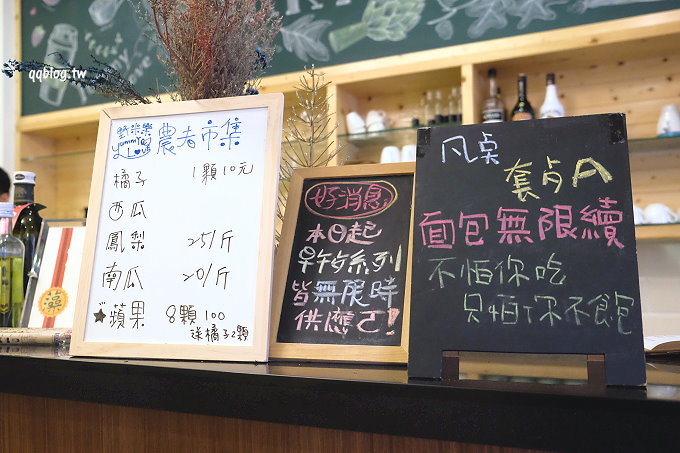 qqblog.tw
野樂樂
yummy
Love
農者市集
橘子 1顆10元
西瓜
鳳梨 25/斤
南瓜 20/斤
★蘋果 8顆100
送橘子2顆
好消息
本日起
早午餐系列
皆無限時
供應己!
凡点
套餐A
面包無限續
不怕你吃
只怕你不飽